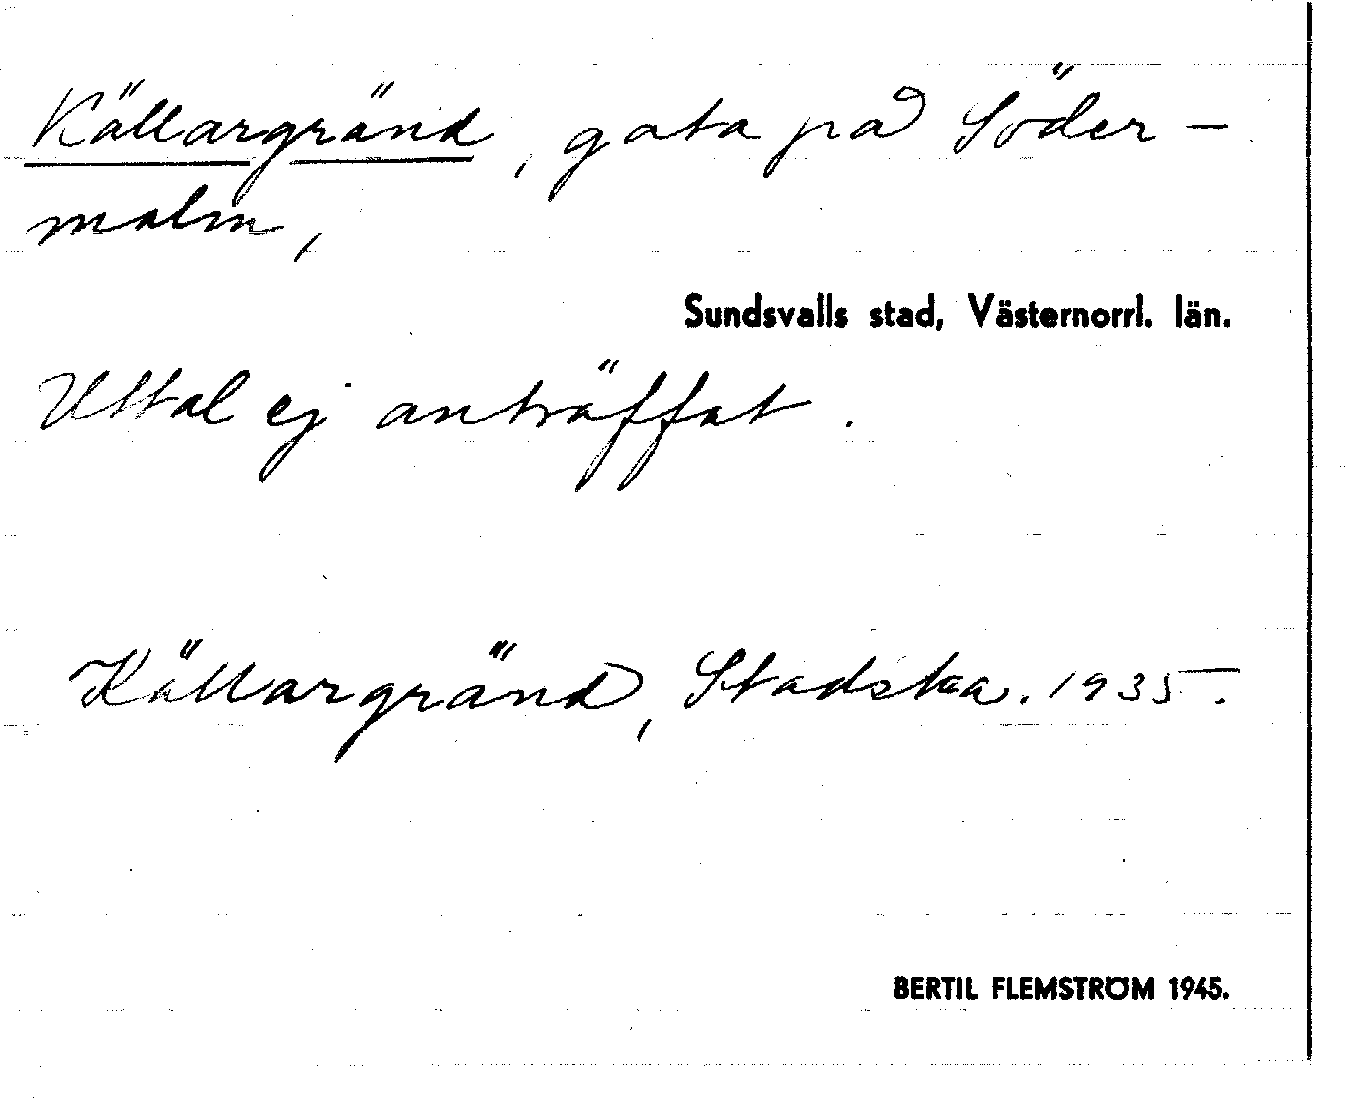 Källargränd, gata på Söder-
malm,
Sundsvalls stad, Västernorrl. län.
Uttal ej anträffat.
Källargränd, Stadska. 1935.
BERTIL FLEMSTRÖM 1945.